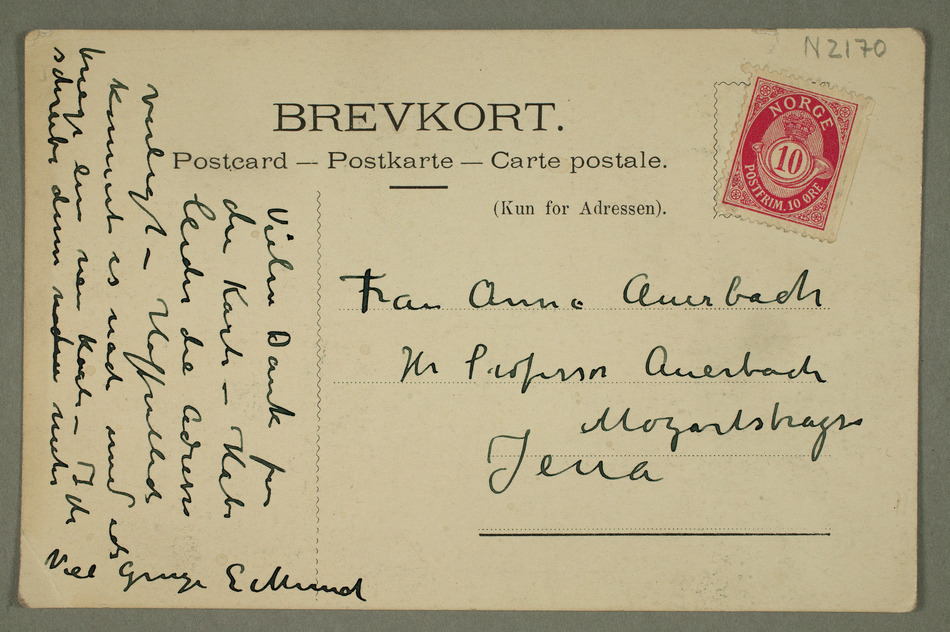 N2170
BREVKORT.
Postcard — Postkarte — Carte postale.
(Kun for Adressen).
NORGE
10
POSTFRIM. 10 ØRE
Frau Anna Auerbach
Hr Professor Auerbach
Mozartstrasse
Jena
Vielen Dank für
die Karte – Habe
leider die Adresse
verlegt – Hoffentlich
kommt es nach und ich
kriege ein neu Karte – Ich
schreibe dann
Viel Grüsse E Munch